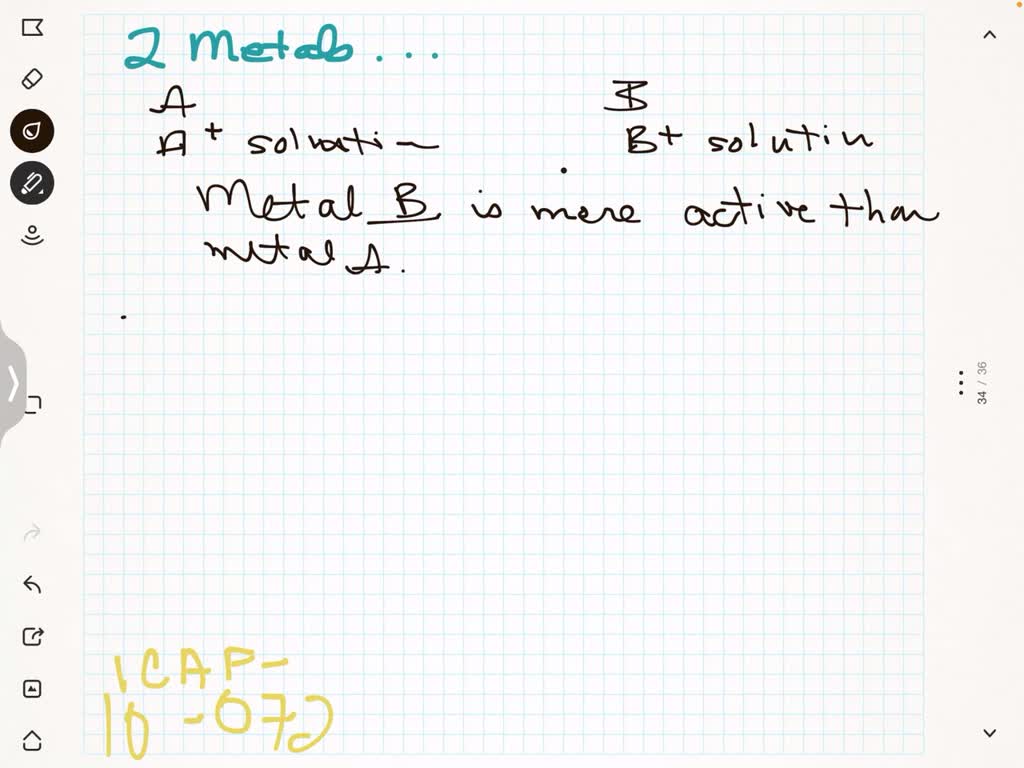 2 Metals...
A
B
A+ solution
B+ solutin
Metal B is more active than
metal A.
34 / 36
ICAP-
10-070